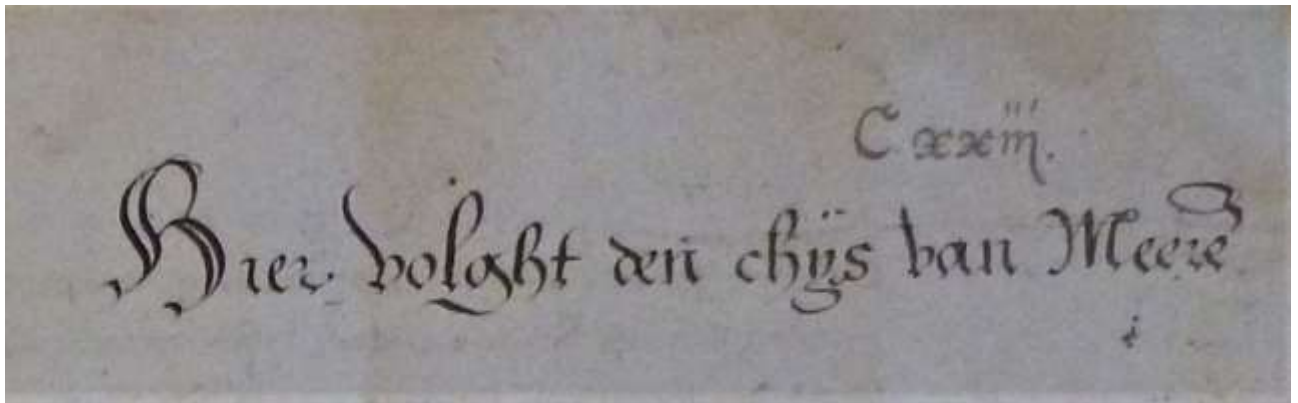 C xxiij.
Hier volght den chijs van Meere
i